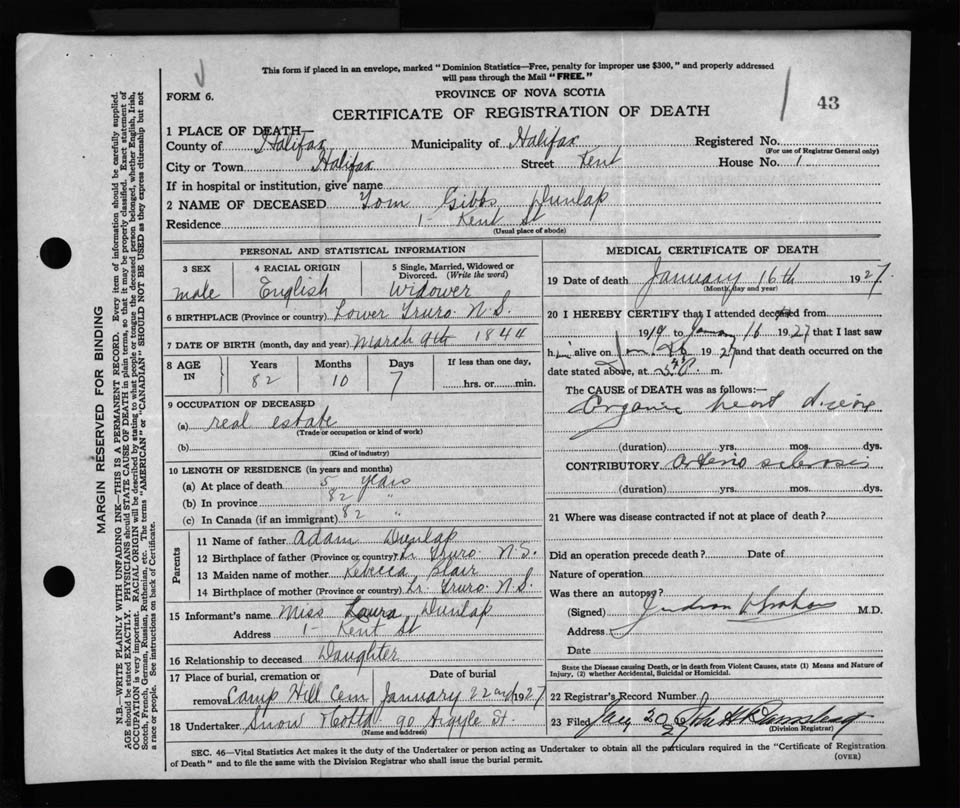 This form if placed in an envelope, marked "Dominion Statistics—Free, penalty for improper use $300," and properly addressed
will pass through the Mail "FREE."
FORM 6.
PROVINCE OF NOVA SCOTIA
43
CERTIFICATE OF REGISTRATION OF DEATH
1 PLACE OF DEATH—
County of Halifax Municipality of Halifax Registered No.
(For use of Registrar General only)
City or Town Halifax Street Kent House No. 1
If in hospital or institution, give name
2 NAME OF DECEASED Tom Gibbs Dunlap
Residence 1- Kent St
(Usual place of abode)
PERSONAL AND STATISTICAL INFORMATION
3 SEX
male
4 RACIAL ORIGIN
English
5 Single, Married, Widowed or
Divorced. (Write the word)
Widower
6 BIRTHPLACE (Province or country) Lower Truro N.S.
7 DATE OF BIRTH (month, day and year) March 9th 1844
8 AGE
IN
Years
82
Months
10
Days
7
If less than one day,
hrs. or min.
9 OCCUPATION OF DECEASED
(a) real estate
(Trade or occupation or kind of work)
(b)
(Kind of industry)
10 LENGTH OF RESIDENCE (in years and months)
(a) At place of death 5 years
(b) In province 82 "
(c) In Canada (if an immigrant) 82 "
Parents
11 Name of father Adam Dunlap
12 Birthplace of father (Province or country) Lr Truro N.S.
13 Maiden name of mother Rebecca Blair
14 Birthplace of mother (Province or country) Lr. Truro N.S.
15 Informant's name Miss Laura Dunlap
Address 1- Kent St
16 Relationship to deceased Daughter
17 Place of burial, cremation or Date of burial
removal Camp Hill Cem January 22nd 1927
18 Undertaker Snow 90 Argyle St.
(Name and address)
MEDICAL CERTIFICATE OF DEATH
19 Date of death January 16th 1927
(Month, day and year)
20 I HEREBY CERTIFY that I attended deceased from
1919 to Jan 16 1927 that I last saw
him alive on Jan 1927 and that death occurred on the
date stated above, at m.
The CAUSE of DEATH was as follows:—
Organic heart disease
(duration) yrs. mos. dys.
CONTRIBUTORY arterio sclerosis
(duration) yrs. mos. dys.
21 Where was disease contracted if not at place of death?
Did an operation precede death? Date of
Nature of operation
Was there an autopsy?
(Signed) Judson Graham M.D.
Address
Date
State the Disease causing Death, or in death from Violent Causes, state (1) Means and Nature of
Injury, (2) whether Accidental, Suicidal or Homicidal.
22 Registrar's Record Number
23 Filed Jany 20 27
(Division Registrar)
SEC. 46—Vital Statistics Act makes it the duty of the Undertaker or person acting as Undertaker to obtain all the particulars required in the "Certificate of Registration
of Death" and to file the same with the Division Registrar who shall issue the burial permit.
(OVER)
MARGIN RESERVED FOR BINDING
N.B.—WRITE PLAINLY WITH UNFADING INK—THIS IS A PERMANENT RECORD. Every item of information should be carefully supplied.
AGE should be stated EXACTLY. PHYSICIANS should STATE CAUSE OF DEATH in plain terms, so that it may be properly classified. Exact statement of
OCCUPATION is very important. RACIAL ORIGIN will be described by stating to what people or tongue the deceased person belonged, whether English, Irish,
Scotch, French, German, Russian, Ruthenian, etc. The terms "AMERICAN" or "CANADIAN" SHOULD NOT BE USED as they express citizenship but not
a race or people. See instructions on back of Certificate.